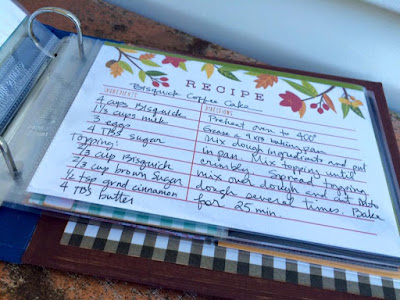 RECIPE
Bisquick Coffee Cake
INGREDIENTS
DIRECTIONS
4 cups Bisquick
1 1/3 cups milk
3 eggs
4 TBS sugar
Topping:
2/3 cup Bisquick
2/3 cup brown sugar
1 tsp grnd cinnamon
4 TBS butter
Preheat oven to 400°
Grease a 9x13 baking pan.
Mix dough ingredients and put
in pan. Mix topping until
crumbly. Spread topping
mix over dough and cut into
dough several times. Bake
for 25 min.